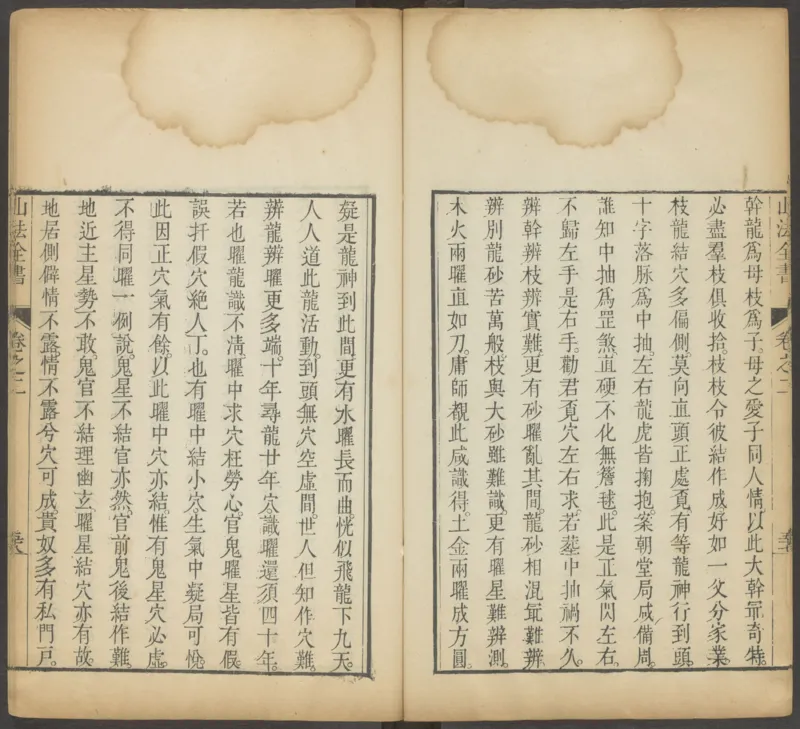 幹龍爲母枝爲子。母之愛子同人情。以此大幹㝡奇特。
必盡羣枝俱收拾。枝枝令彼結作成。好如一父分家業
枝龍結穴多偏側。莫向直頭正處覔。有等龍神行到頭。
十字落脉爲中抽。左右龍虎皆掬抱。案朝堂局咸備周。
誰知中抽爲罡煞。直硬不化無簷毬。此是正氣閃左右。
不歸左手是右手。勸君覔穴左右求。若塟中抽禍不久。
辨幹辨枝辨實難。更有砂曜亂其間。龍砂相混㝡難辨
辨別龍砂苦萬般。枝與大砂雖難識。更有曜星難辨測。
木火兩曜直如刀。庸師覩此咸識得。土金兩曜成方圓。
山法全書
卷之二
疑是龍神到此間。更有水曜長而曲。恍似飛龍下九天。
人人道此龍活動。到頭無穴空虛間。世人但知作穴難。
辨龍辨曜更多端。十年尋龍廿年穴。識曜還須四十年。
若也曜龍識不淸。曜中求穴枉勞心。官鬼曜星皆有假。
誤扦假穴絕人丁。也有曜中結小穴。生氣中凝局可悅
此因正穴氣有餘。以此曜中穴亦結。惟有鬼星穴必虛。
不得同曜一例說。鬼星不結官亦然。官前鬼後結作難。
地近主星勢不敢。鬼官不結理幽玄。曜星結穴亦有故。
地居側僻情不露。情不露兮穴可成。貴奴多有私門戶。
山法全書
卷之二